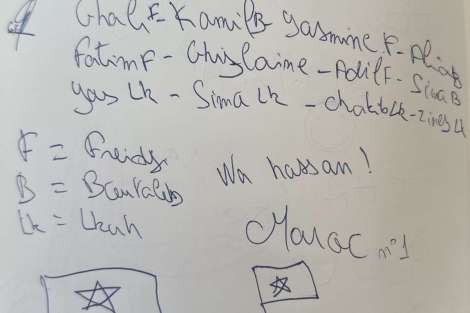 Ghali F - Kamil B Yasmine F - Alia B
Fatim F - Ghizlaine - Adil F - Sima B
Yas LK - Sima LK - Chakib LK - Zineb LK
F =
B =
LK = Lkah
Wa hassan !
Maroc n°1